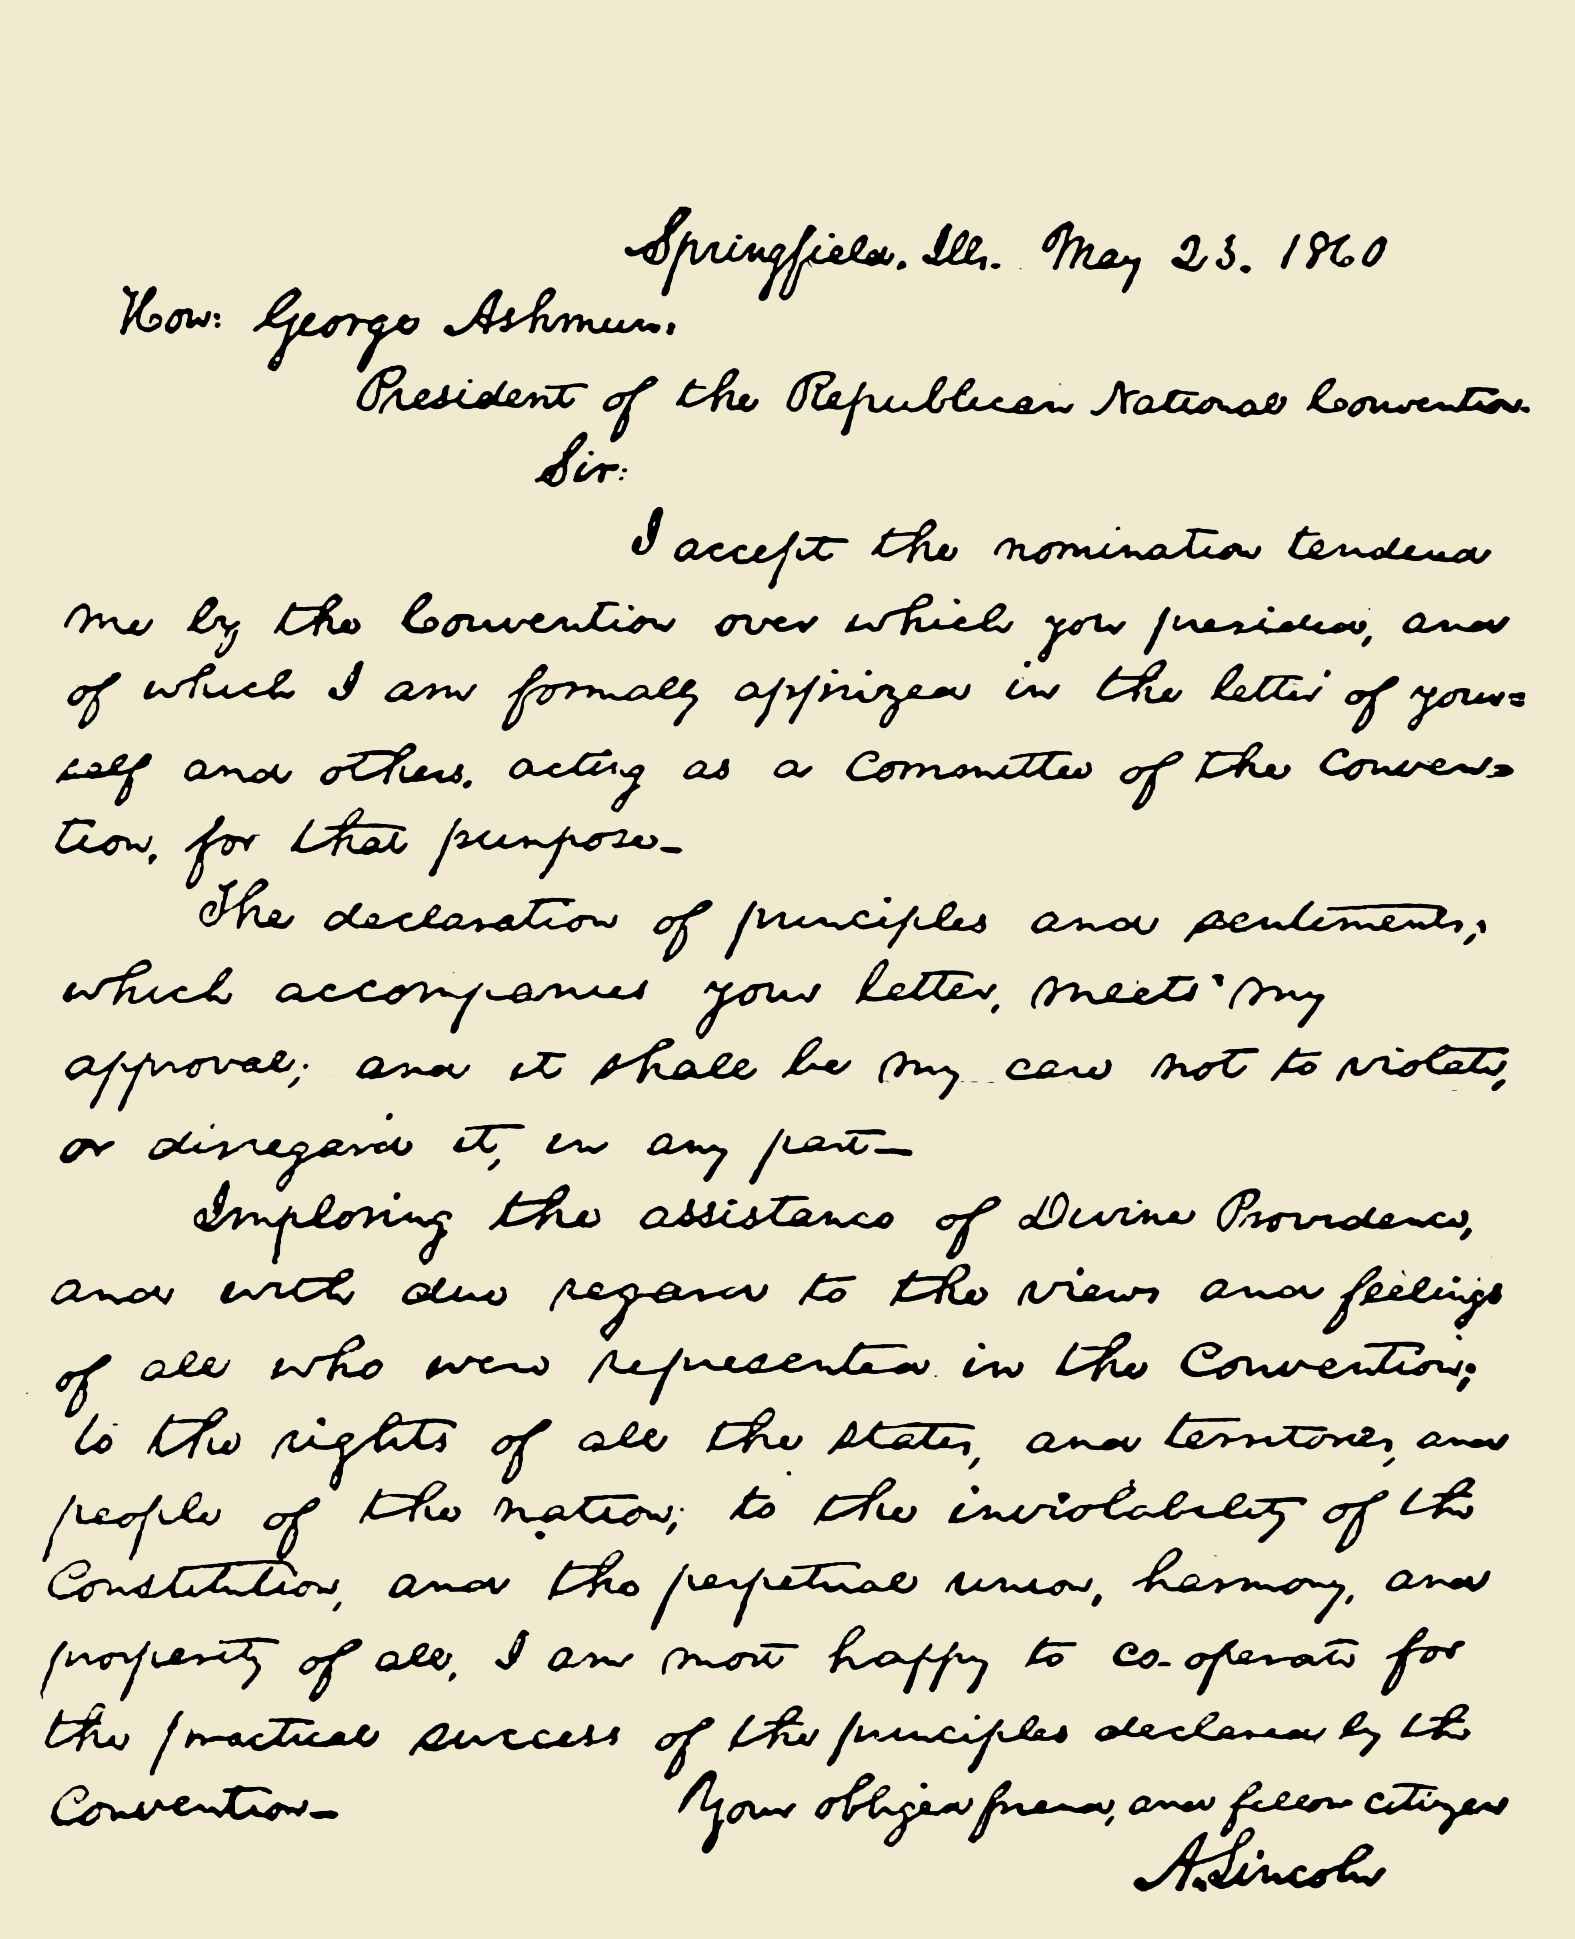 Springfield, Ills. May 23. 1860
Hon: George Ashmun:
President of the Republican National Convention.
Sir:
I accept the nomination tendered
me by the Convention over which you presided, and
of which I am formally apprized in the letter of your=
self and others, acting as a committee of the conven=
tion, for that purpose—
The declaration of principles and sentiments,
which accompanies your letter, meets my
approval; and it shall be my care not to violate,
or disregard it, in any part—
Imploring the assistance of Divine Providence,
and with due regard to the views and feelings
of all who were represented in the Convention;
to the rights of all the states, and territories, and
people of the nation; to the inviolability of the
Constitution, and the perpetual union, harmony, and
prosperity of all, I am most happy to co-operate for
the practical success of the principles declared by the
Convention—
Your obliged friend, and fellow citizen
A. Lincoln